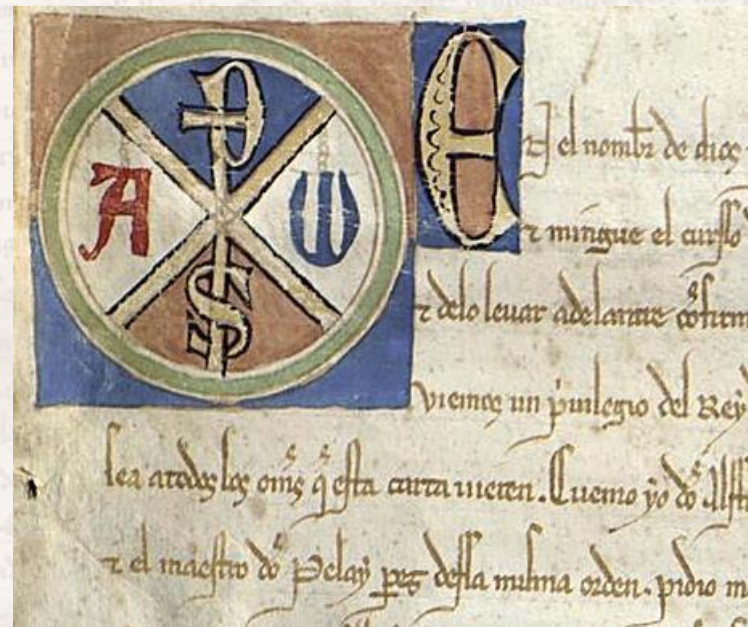 E
A ω
S
el nombre de dios
τ mingue el curso
τ delo leuar adelante cofirm
viemos un priuilegio del Rey
sea atodos los oms q̃ esta carta uieren. Cuemo yo do Alff
τ el maestro do Pelay perez dessa misma orden. pidio m